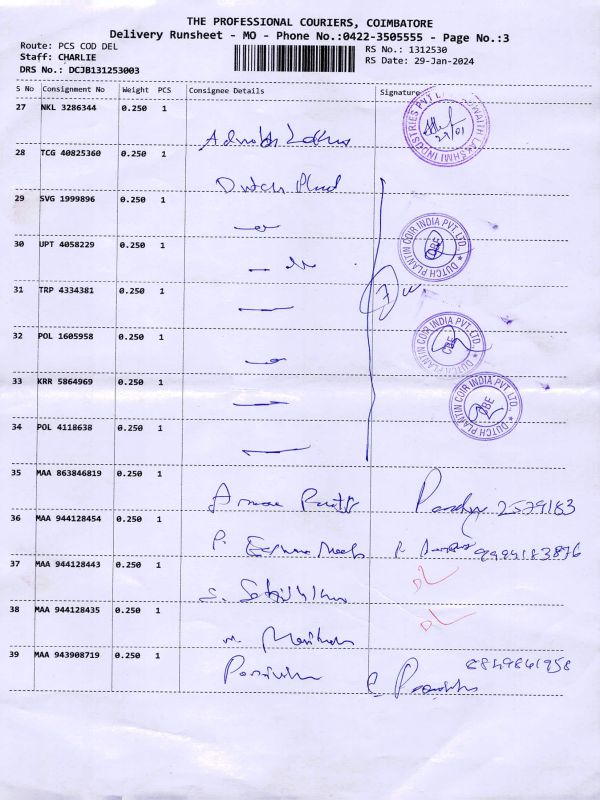 THE PROFESSIONAL COURIERS, COIMBATORE
Delivery Runsheet - MO - Phone No.:0422-3505555 - Page No.:3
Route: PCS COD DEL
Staff: CHARLIE
DRS No.: DCJB131253003
RS No.: 1312530
RS Date: 29-Jan-2024
S No Consignment No Weight PCS Consignee Details Signature
27 NKL 3286344 0.250 1
29/01
28 TCG 40825360 0.250 1
Dutch Plant
29 SVG 1999896 0.250 1
DUTCH PLANTIN COIR INDIA PVT. LTD. CBE
30 UPT 4058229 0.250 1
31 TRP 4334381 0.250 1
32 POL 1605958 0.250 1
DUTCH PLANTIN COIR INDIA PVT. LTD. CBE
33 KRR 5864969 0.250 1
DUTCH PLANTIN COIR INDIA PVT. LTD. CBE
34 POL 4118638 0.250 1
35 MAA 863846819 0.250 1
2579183
36 MAA 944128454 0.250 1
9994183876
37 MAA 944128443 0.250 1
DL
38 MAA 944128435 0.250 1
DL
39 MAA 943908719 0.250 1